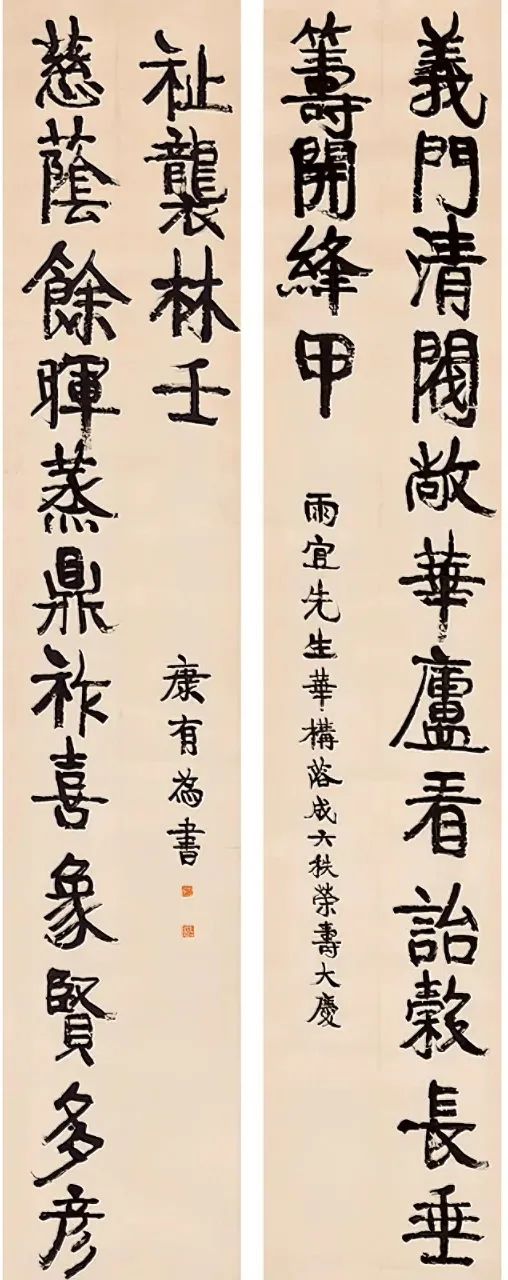 義門清閥敞華廬看詒穀長垂
籌開絳甲
雨宜先生華構落成六秩榮壽大慶
慈蔭餘暉蒸鼎祚喜象賢多彥
祉襲林壬
康有為書